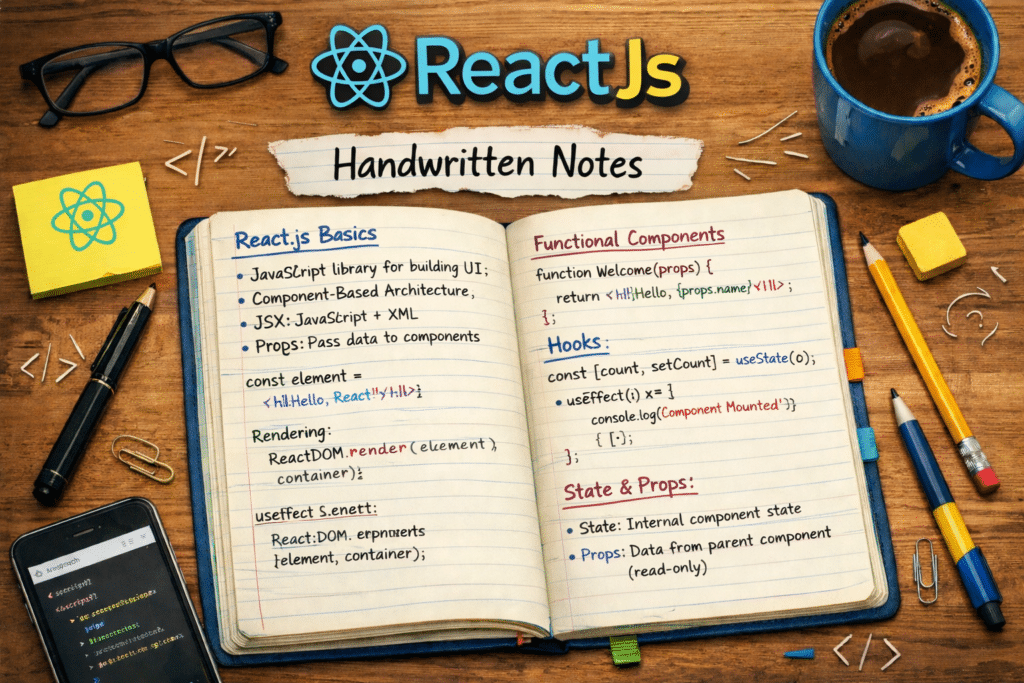 ReactJs
Handwritten Notes
React.js Basics
• JavaScript library for building UI;
• Component-Based Architecture,
• JSX: JavaScript + XML
• Props: Pass data to components
const element =
Hello, React!
Rendering:
ReactDOM.render(element),
container);
useffect S.enett:
React:DOM. erpnverts
element, container);
Functional Components
function Welcome(props) {
return Hello, {props.name}
};
Hooks:
const [count, setCount] = useState(0);
• useEffect(i) x= ]
console.log(Component Mounted'}}
{ [·];
};
State & Props:
• State: Internal component state
• Props: Data from parent component
(read-only)